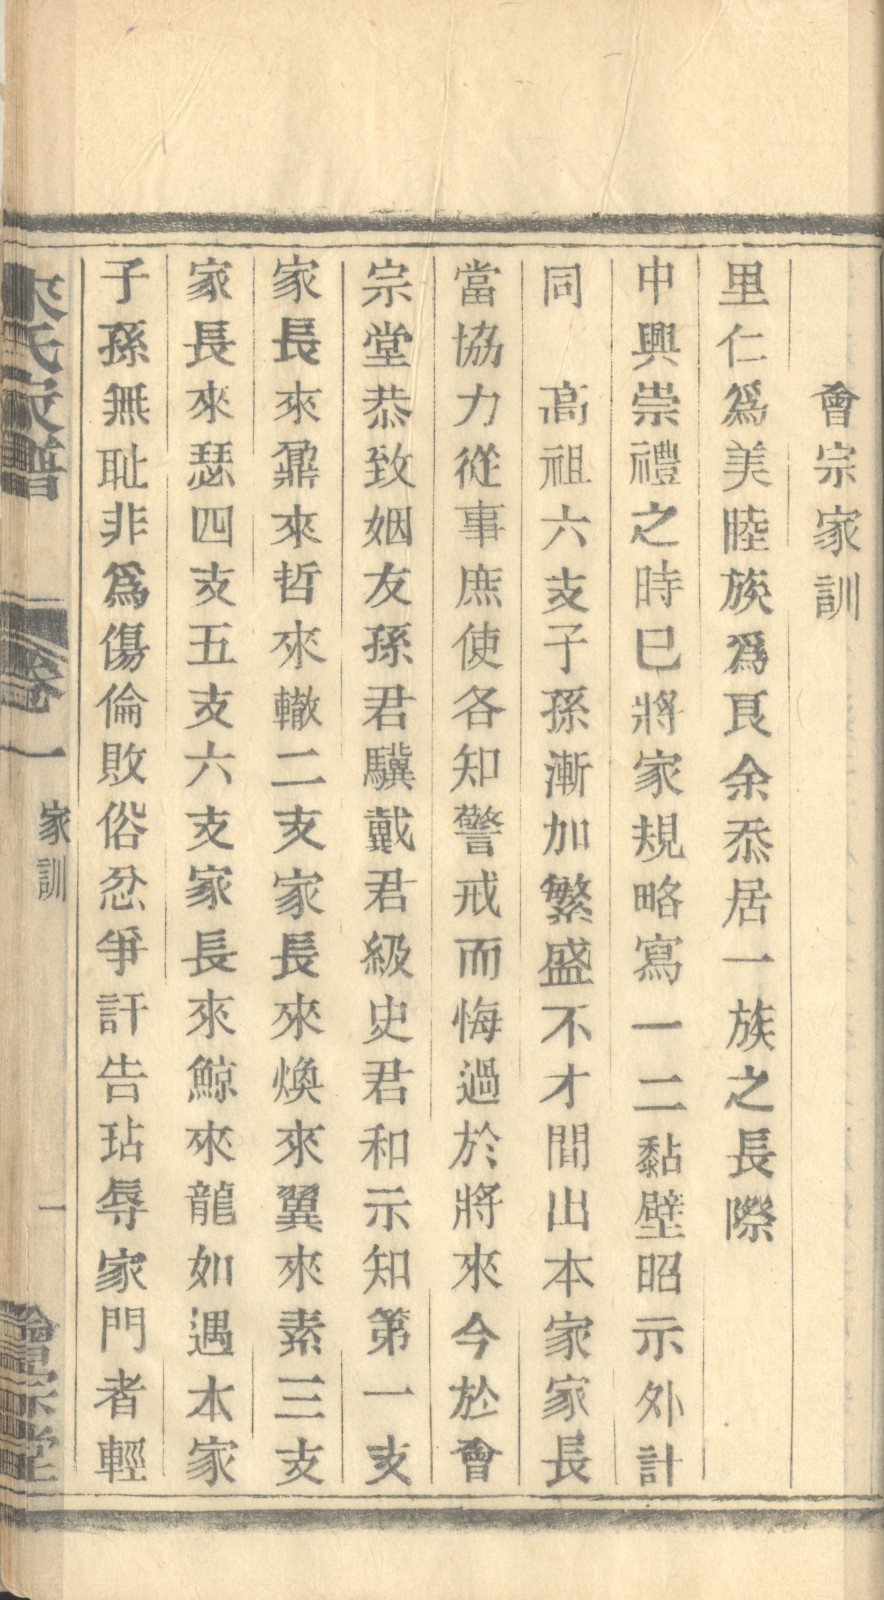 會宗家訓
里仁爲美睦族爲良余忝居一族之長際
中興崇禮之時巳將家規略寫一二黏壁昭示外計
同　高祖六支子孫漸加繁盛不才間出本家家長
當協力從事庶使各知警戒而悔過於將來今於會
宗堂恭致姻友孫君驥戴君級史君和示知第一支
家長來鼐來哲來轍二支家長來煥來翼來素三支
家長來瑟四支五支六支家長來鯨來龍如遇本家
子孫無耻非爲傷倫敗俗忿爭訐告玷辱家門者輕
氏家譜
卷一
家訓
一
會宗堂